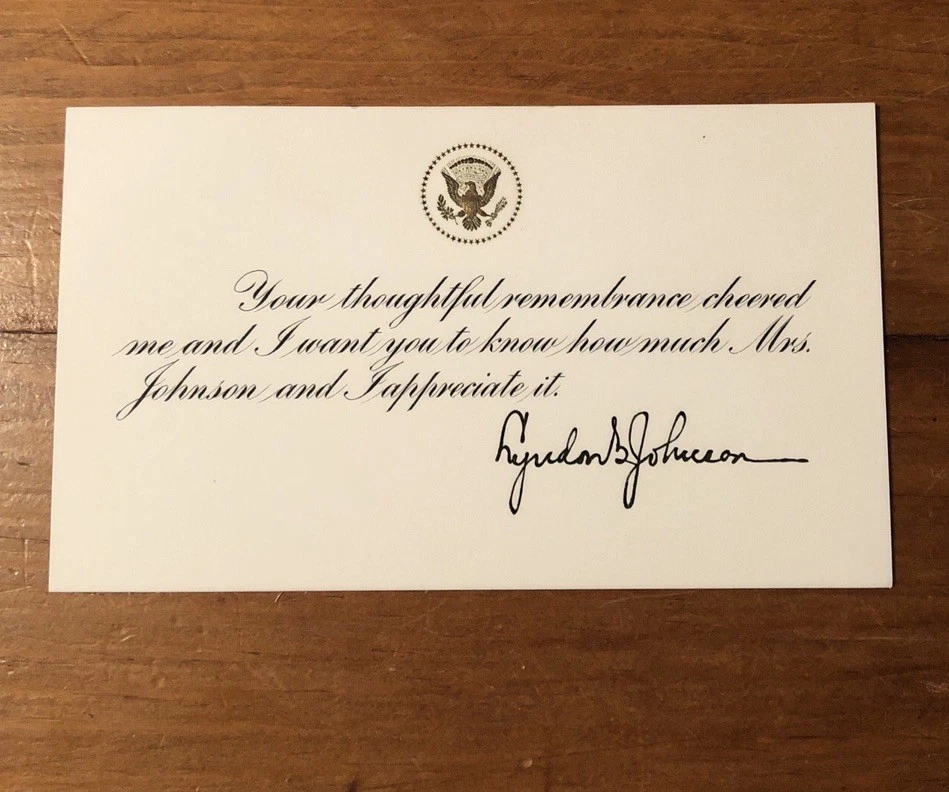 Your thoughtful remembrance cheered
me and I want you to know how much Mrs.
Johnson and I appreciate it.
Lyndon B. Johnson